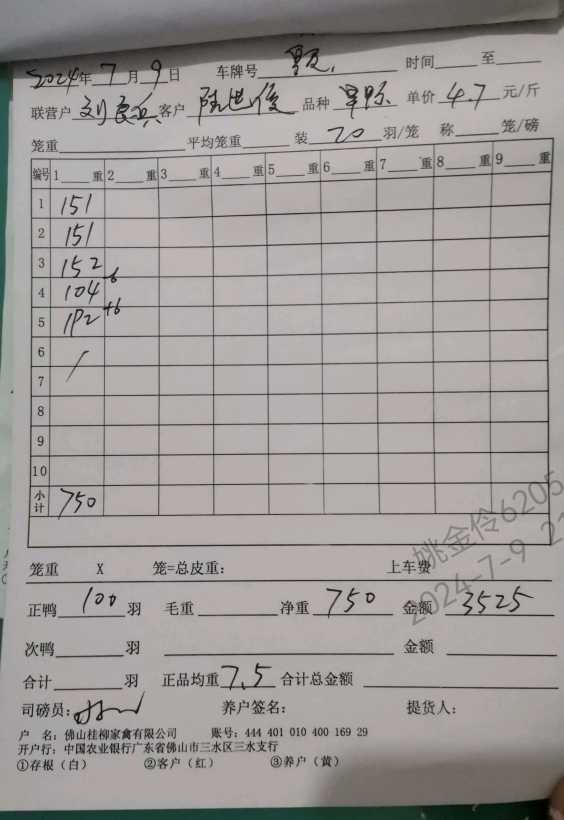 2024年 7 月 9 日 车牌号 时间 至
联营户 刘良兵 客户 陆世俊 品种 单价 4.7 元/斤
笼重 平均笼重 装 20 羽/笼 称 笼/磅
编号 1 重 2 重 3 重 4 重 5 重 6 重 7 重 8 重 9 重
1 151
2 151
3 152
4 104 -6
5 192 +6
6 /
7
8
9
10
小计 750
笼重 X 笼=总皮重: 上车费
正鸭 100 羽 毛重 净重 750 金额 3525
次鸭 羽 金额
合计 羽 正品均重 7.5 合计总金额
司磅员: 养户签名: 提货人:
户 名: 佛山桂柳家禽有限公司 账号: 444 401 010 400 169 29
开户行: 中国农业银行广东省佛山市三水区三水支行
①存根（白） ②客户（红） ③养户（黄）
姚金伶6205
2024-7-9